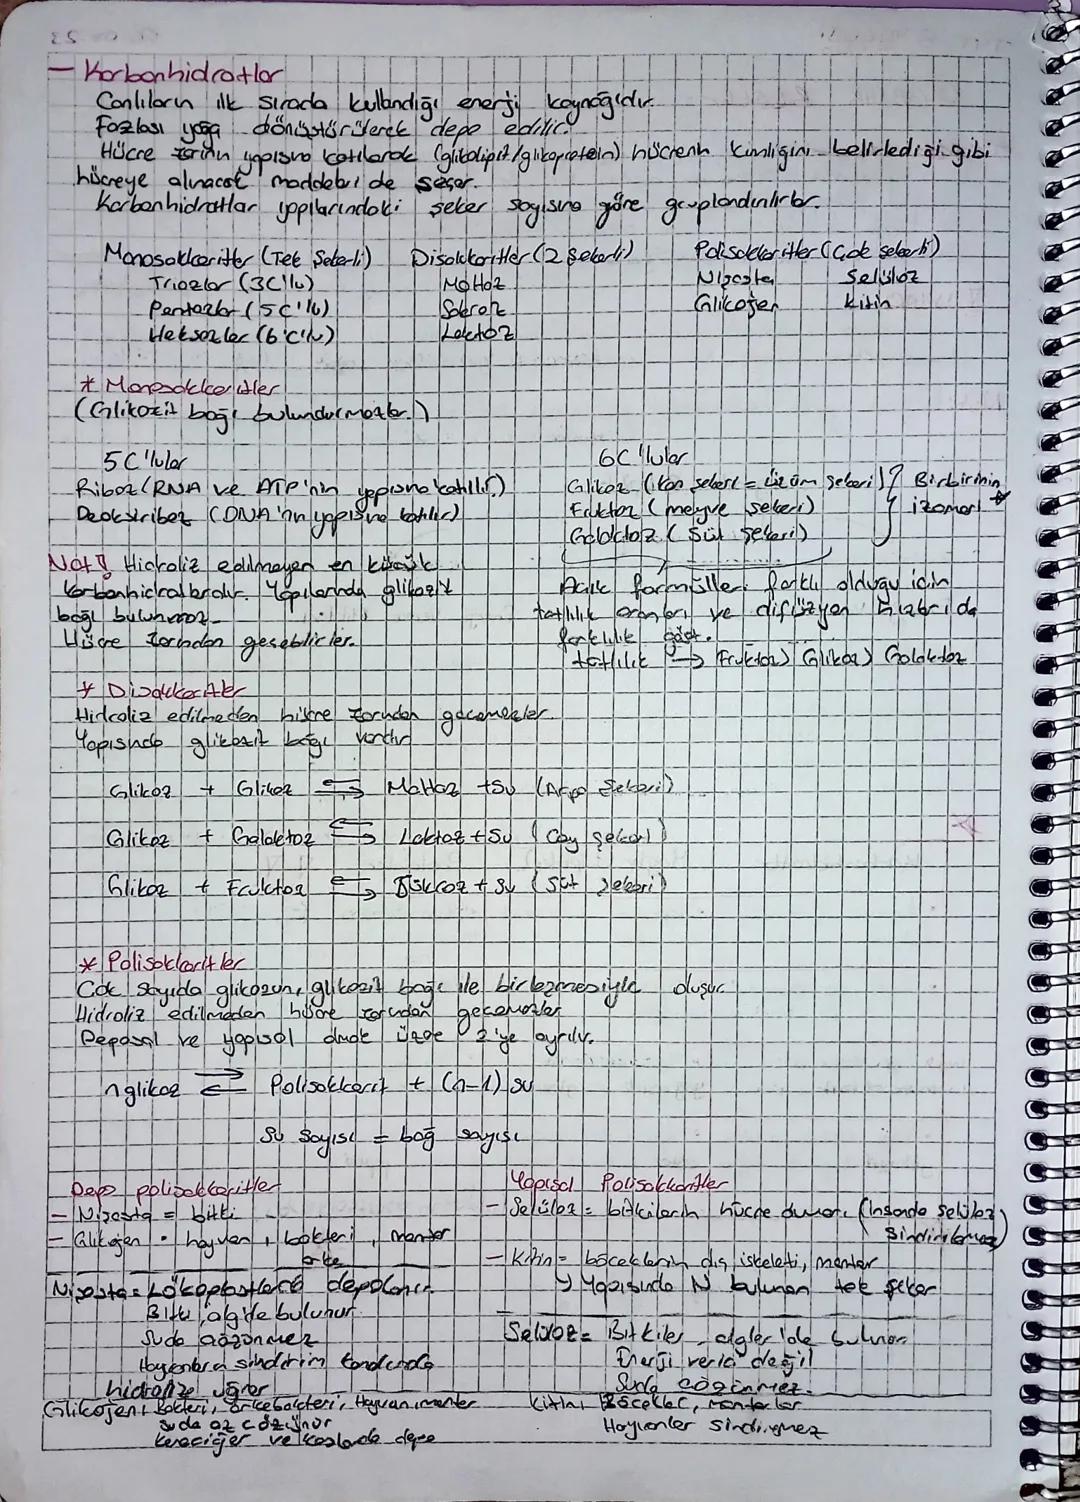 - Karbonhidratlar
Canlıların ilk sırada kullandığı enerji kaynağıdır.
Fazlası yağa dönüştürülerek depo edilir.
Hücre zarının yapısına katılarak (glikolipit/glikoprotein) hücrenin kimliğini belirlediği gibi
hücreye alınacak maddeleri de seçer.
Karbonhidratlar yapılarındaki şeker sayısına göre gruplandırılırlar.
Monosakkaritler (Tek Şekerli) Disakkaritler (2 Şekerli) Polisakkaritler (Çok şekerli)
Triozlar (3C'lu) Maltoz Nişasta Selüloz
Pentozlar (5C'lu) Sakroz Glikojen Kitin
Heksozlar (6C'lu) Laktoz
* Monosakkaritler
(Glikozit bağı bulundurmazlar.)
5C'lular 6C'lular
Riboz (RNA ve ATP'nin yapısına katılır) Glikoz (kan şekeri = üzüm şekeri) } Birbirinin
Deoksiriboz (DNA'nın yapısına katılır) Fruktoz (meyve şekeri) izomeri *
Galaktoz (Süt şekeri)
Not!! Hidroliz edilmeyen en küçük
karbonhidratlardır. Yapılarında glikozit
bağı bulunmaz.
Hücre zarından geçebilirler.
Açık formülleri farklı olduğu için
tatlılık oranları ve difüzyon hızları da
farklılık göst.
tatlılık → Fruktoz > Glikoz > Galaktoz
* Disakkaritler
Hidroliz edilmeden hücre zarından geçemezler.
Yapısında glikozit bağı vardır
Glikoz + Glikoz ⇌ Maltoz + Su (Arpa Şekeri)
Glikoz + Galaktoz ⇌ Laktoz + Su (Çay şekeri)
Glikoz + Fruktoz ⇌ Sükroz + Su (Süt şekeri)
* Polisakkaritler
Çok sayıda glikozun, glikozit bağı ile birleşmesiyle oluşur.
Hidroliz edilmeden hücre zarından geçemezler
Depasal ve yapısal olmak üzere 2'ye ayrılır.
n glikoz ⇌ Polisakkarit + (n-1) su
Su sayısı = bağ sayısı
Depo polisakkaritler
- Nişasta = bitki
- Glikojen = hayvan, bakteri, mantar
arke
Yapısal Polisakkaritler
- Selüloz = bitkilerin hücre duvarı (İnsanda selüloz
sindirilemez)
- Kitin = böceklerin dış iskeleti, mantar
↳ Yapısında N bulunan tek şeker
Nişasta = Lökoplastlarda depolanır.
Bitki, alg'de bulunur.
Suda çözünmez
Hayvanlarda sindirim kanalında
hidrolize uğrar
Glikojen: Bakteri, arkebakteri, Hayvan, mantar
suda az çözünür
karaciğer ve kaslarda depo
Selüloz = Bitkiler, algler'de bulunur.
Enerji verici değil
Suda çözünmez.
Kitin: Böcekler, mantarlar
Hayvanlar sindiremez